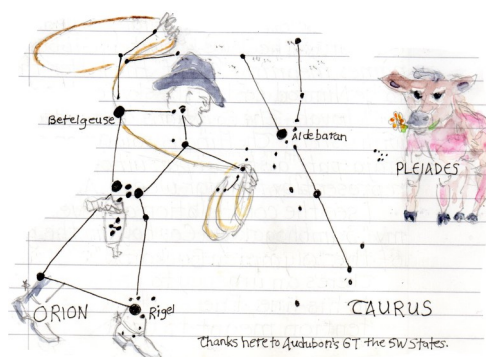 Betelgeuse
Aldebaran
PLEJADES
ORION
Rigel
TAURUS
Thanks here to Audubon's GT the SW States.